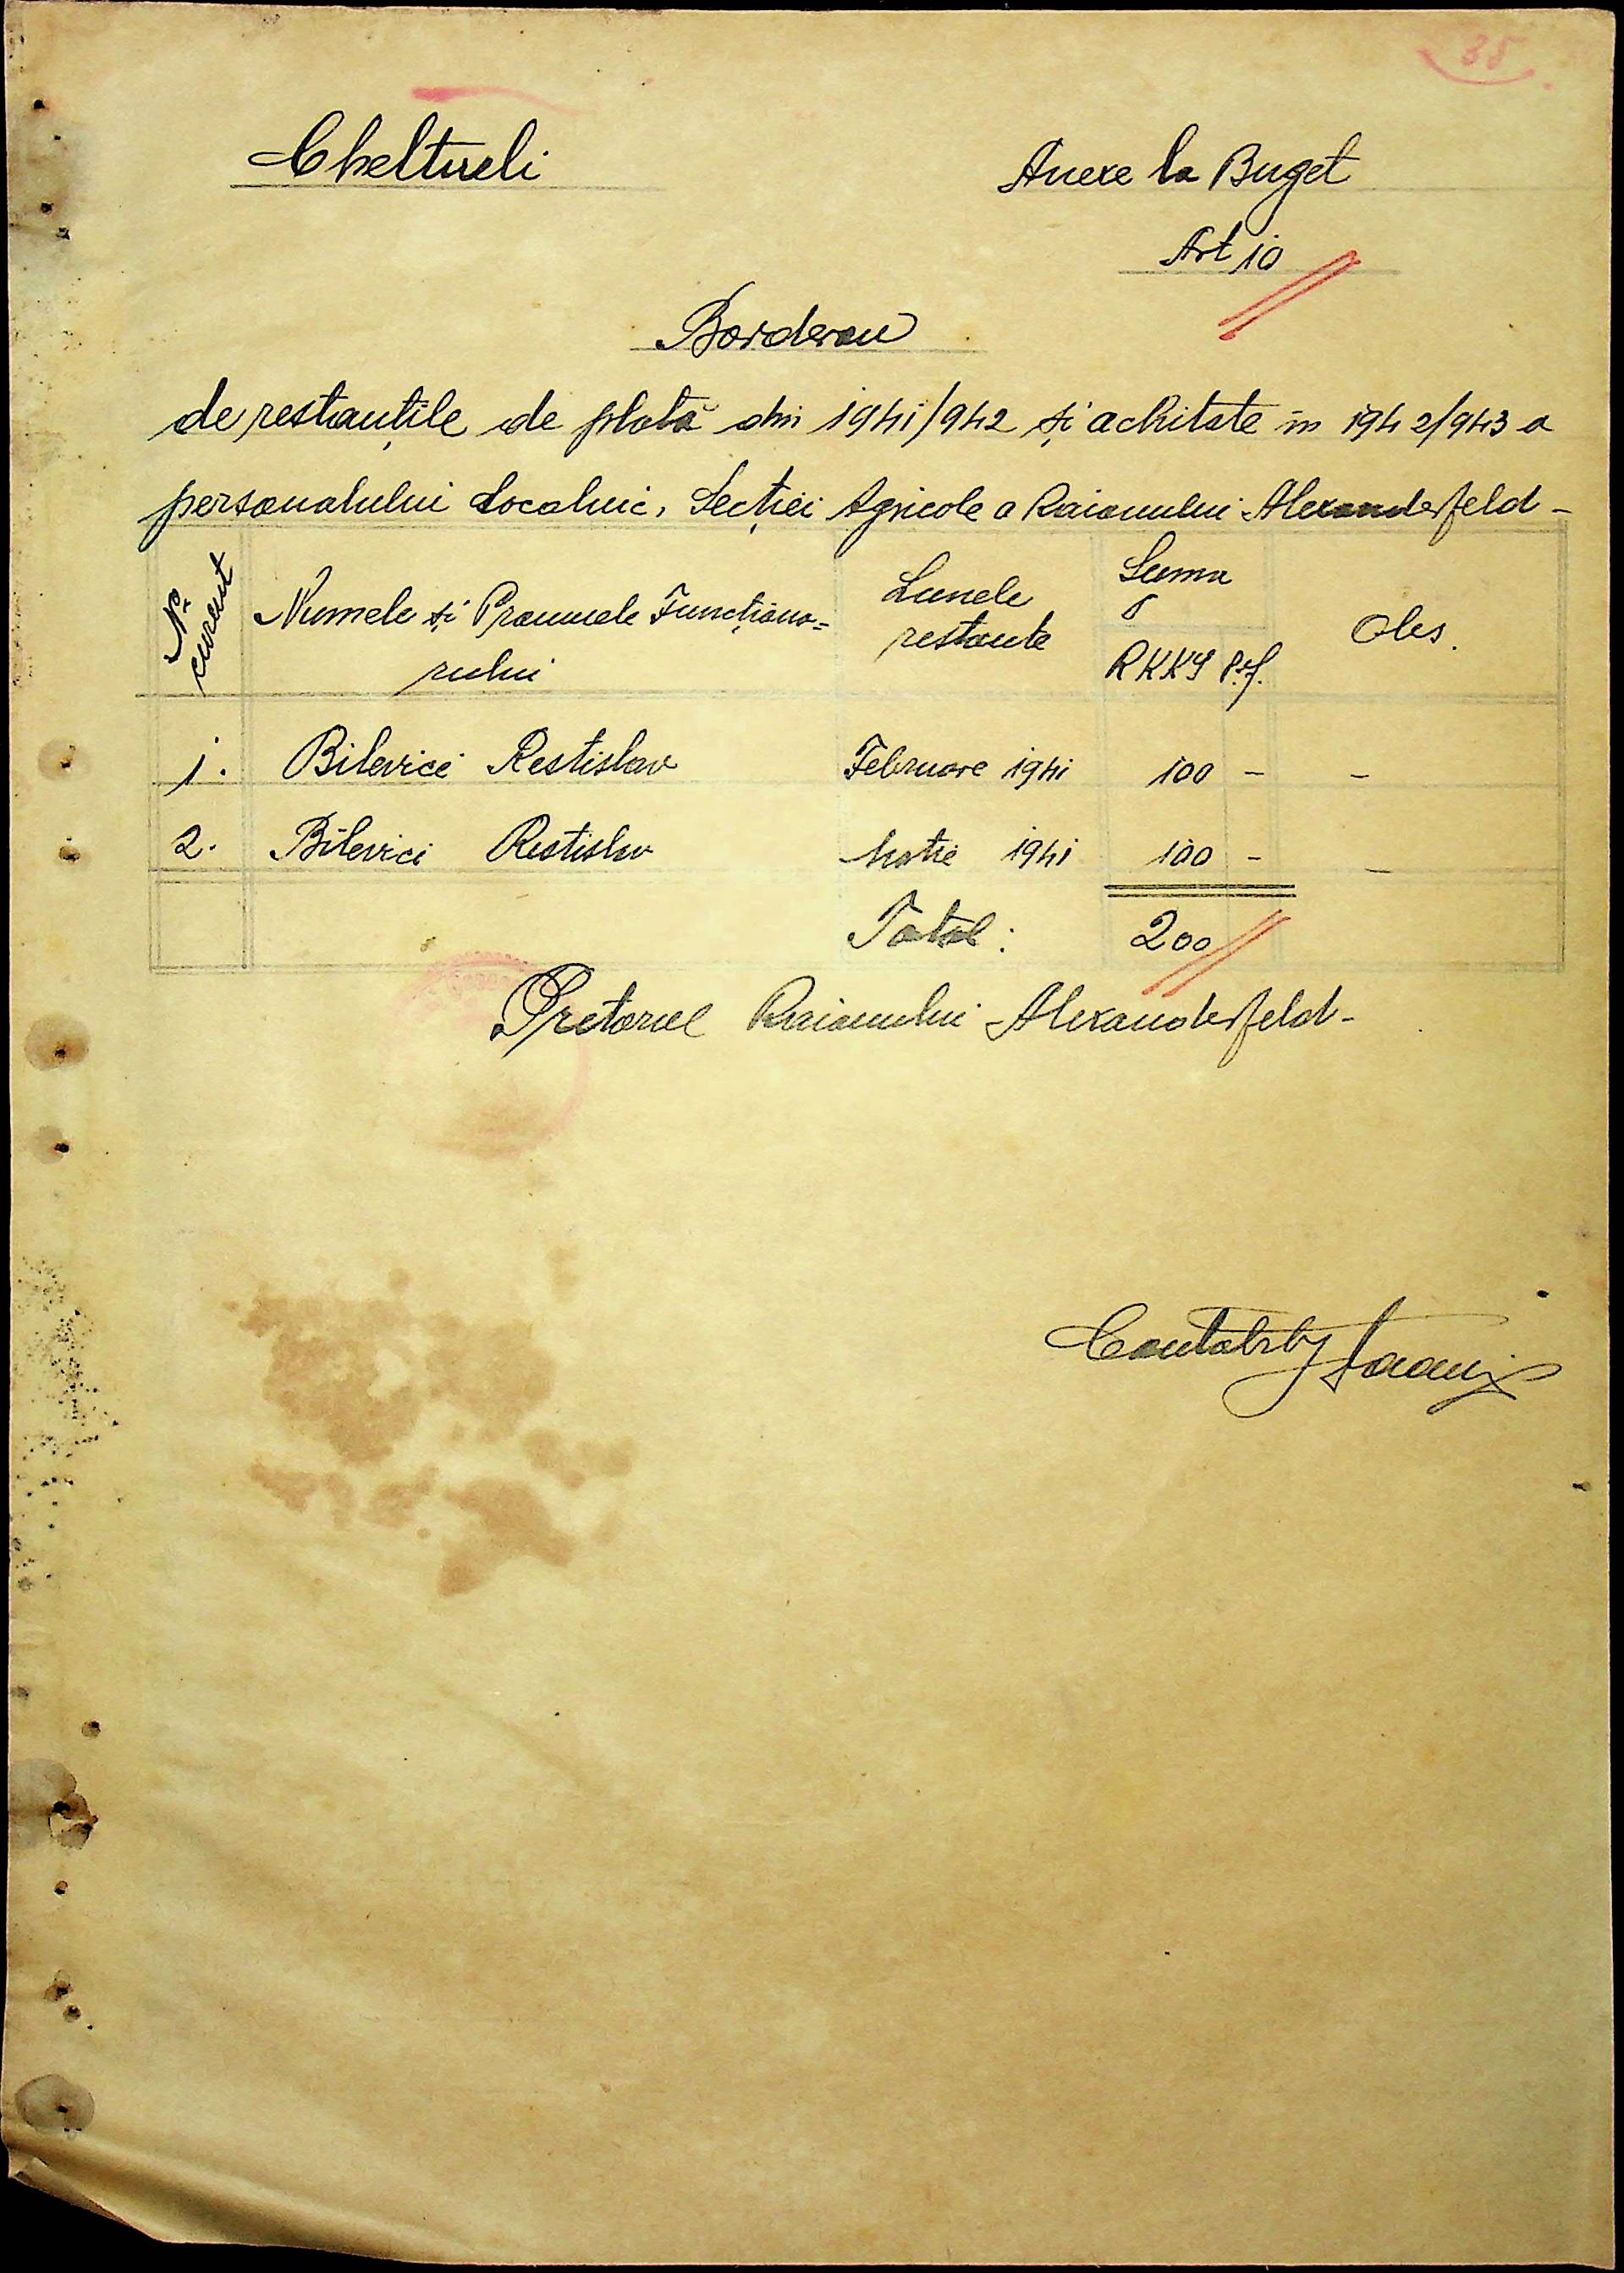 35
Cheltueli
Anexe la Buget
Art 10
Borderou
de restanțile de plată din 1941/942 și achitate in 1942/943 a
personalului Localnic, Secției Agricole a Raionului Alexanderfeld -
No curent Numele și Pronumele Funcționa= rului Lunele restante Suma RKKS Pf. Obs.
1. Bilevici Restislav Februare 1941 100 - -
2. Bilevici Restislav Martie 1941 100 - -
Total: 200
Pretorul Raionului Alexanderfeld -
Contabil